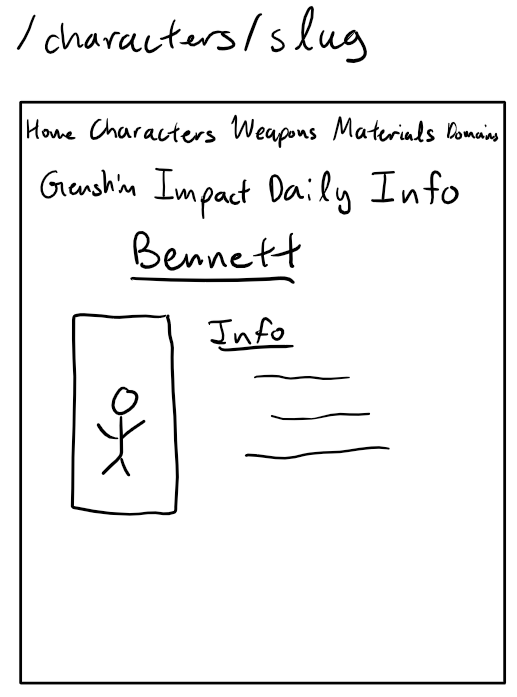 /characters/slug
Home Characters Weapons Materials Domains
Genshin Impact Daily Info
Bennett
Info